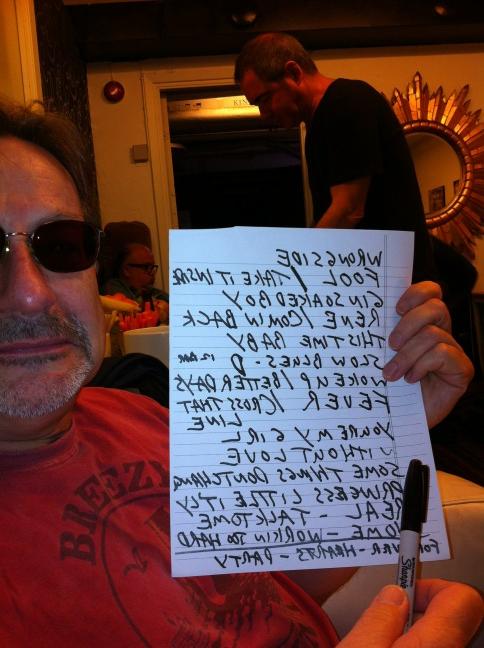 KIN
WRONGSIDE
FOOL / TAKE IT INSIDE
GIN SOAKED BOY
RENE / COMIN BACK
THIS TIME BABY
SLOW BLUES - D
WOKE UP / BETTER DAYS
FEVER / CROSS THAT
LINE
YOURE MY GIRL
WITHOUT LOVE
SOME THINGS DONT CHANG
PRINCESS LITTLE ITLY
REAL - TALK TO ME
HOME - WORKIN TOO HARD
FOREVER - HEARTS - PARTY
Sharpie
BREEZY